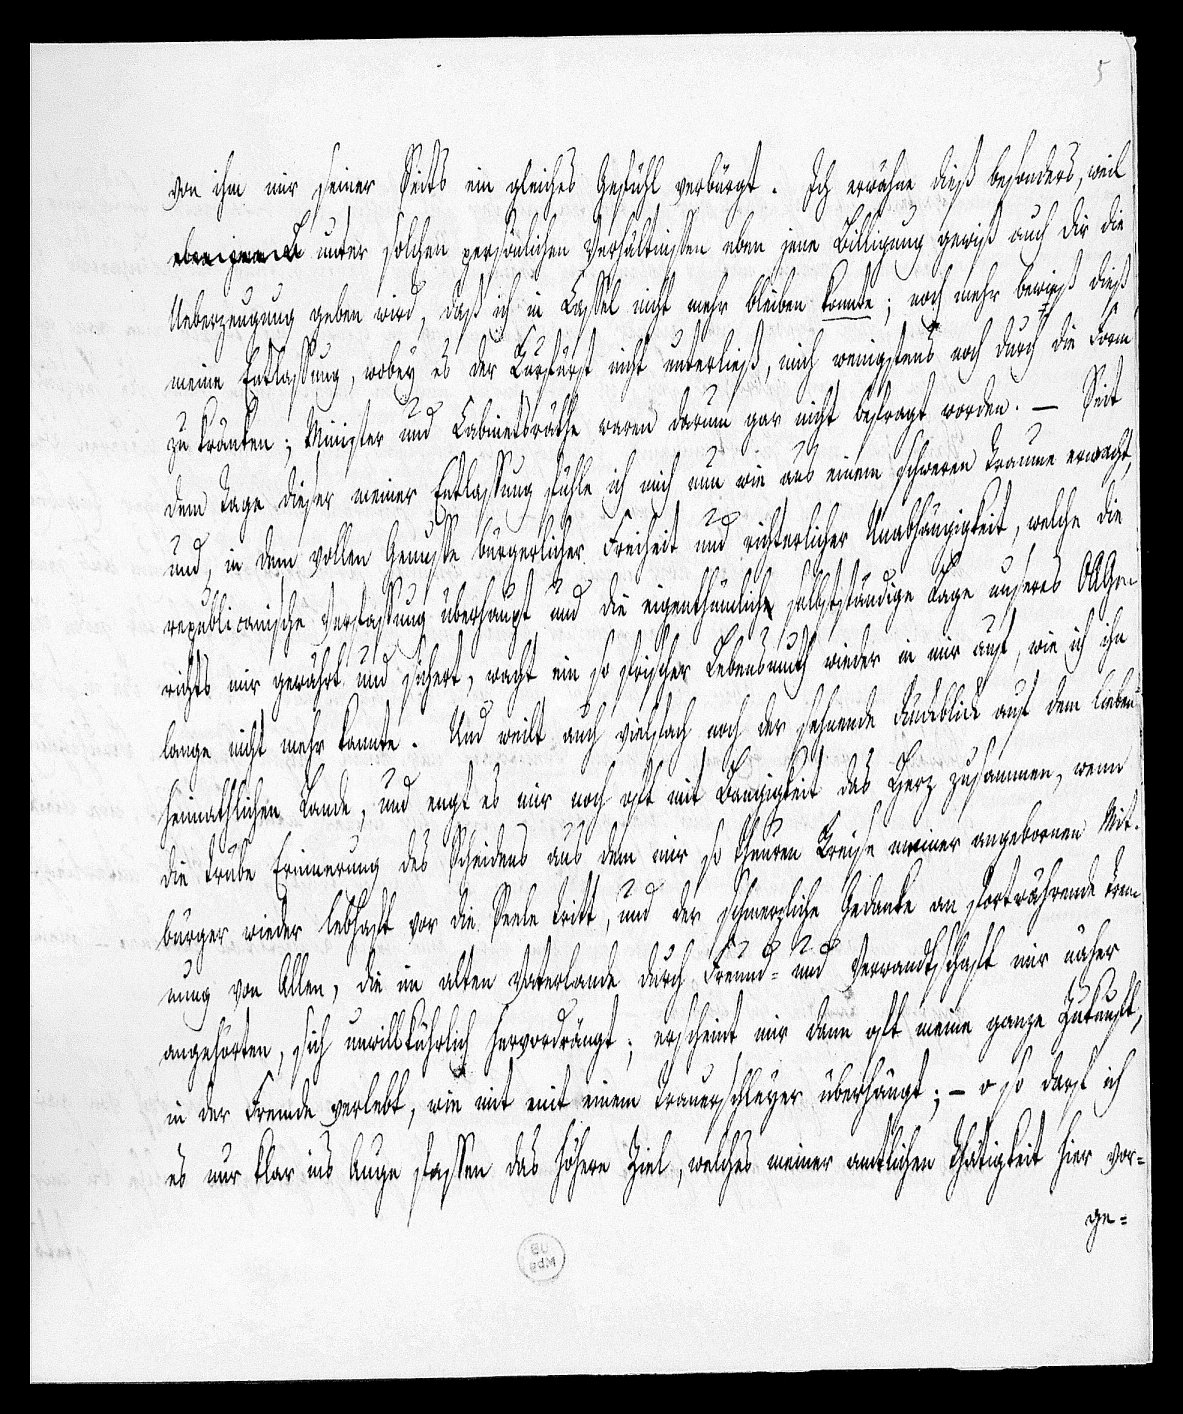 5
von ihm mir seiner Seits ein gleiches Gefühl verbürgt. Ich erwähne dieß besonders, weil
unter solchen persönlichen Verhältnissen eben jene Billigung gewiß auch Dir die
Ueberzeugung geben wird, daß ich in Cassel nicht mehr bleiben konnte; noch mehr bewieß dieß
meine Entlassung, wobey es der Kurfürst nicht unterließ, mich wenigstens noch durch die Form
zu kränken; Minister und Cabinetsräthe waren darum gar nicht befragt worden. — Seit
dem Tage dieser meiner Entlassung fühle ich mich nun wie aus einem schweren Traume erwacht,
und, in dem vollen Genusse bürgerlicher Freiheit und richterlicher Unabhängigkeit, welche die
republicanische Verfassung überhaupt und die eigenthümliche selbstständige Lage unseres OAGe-
richts mir gewährt und sichert, wacht ein so frischer Lebensmuth wieder in mir auf, wie ich ihn
lange nicht mehr kannte. Und weilt auch vielfach noch der sehnende Rückblick auf dem lieben
heimathlichen Lande, und engt es mir noch oft mit Bangigkeit das Herz zusammen, wenn
die trübe Erinnerung des Scheidens aus dem mir so theuren Kreise meiner angebornen Mit-
bürger wieder lebhaft vor die Seele tritt, und der schmerzliche Gedanke an fortwährende Tren-
nung von Allen, die im alten Vaterlande durch Freund- und Verwandtschaft mir näher
angehörten, sich unwillkührlich hervordrängt; erscheint mir dann oft meine ganze Zukunft,
in der Fremde verlebt, wie mit mit einem Trauerschleyer überhängt; — o so darf ich
es nur klar ins Auge fassen das höhere Ziel, welches meiner amtlichen Thätigkeit hier vor-
ge-